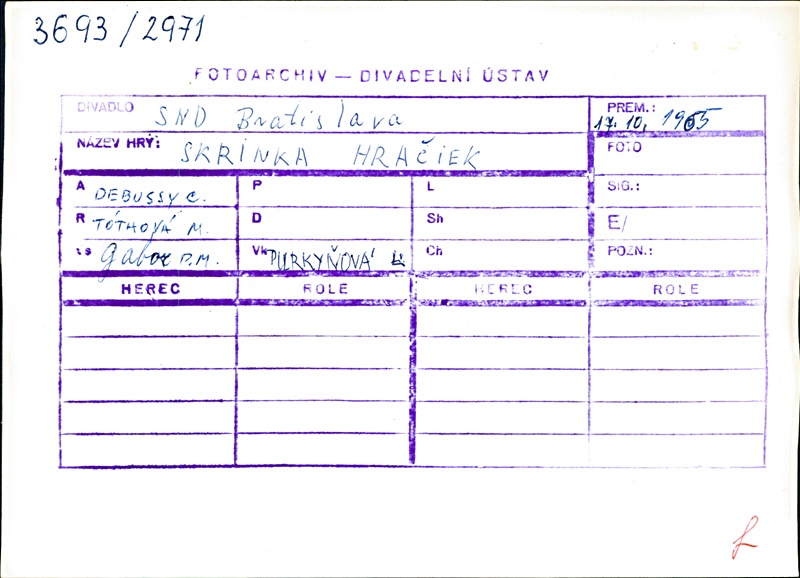 3693/2971
FOTOARCHIV — DIVADELNÍ ÚSTAV
DIVADLO SND Bratislava
PREM.: 17. 10. 1965
NÁZEV HRY: SKRINKA HRAČIEK
FOTO
A DEBUSSY C. P L SIG.:
R TÓTHOVÁ M. D Sh E/
Gabor P.M. Vk PURKYŇOVÁ L. Ch POZN.:
HEREC ROLE HEREC ROLE